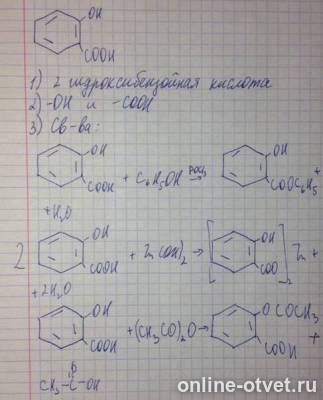 OH
COOH
1) 2 гидроксибензойная кислота
2) -OH и -COOH
3) Св-ва:
OH
COOH + C6H5OH POCl3 → OH
COOC6H5 +
+ H2O
2 OH
COOH + Zn(OH)2 → [ OH
COO ]2 Zn +
+ 2H2O
OH
COOH + (CH3CO)2O → OCOCH3
COOH +
O
CH3-C-OH
online-otvet.ru